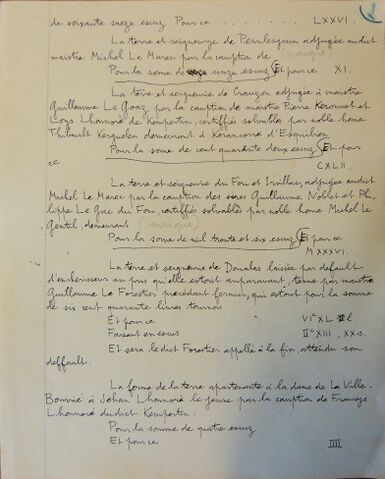 de soixante saeze escuz. Pour ce .......... LXXVI.
La terre et seigneurye de adjugée audict
maistre Michel Le Marec par la caution de (manque)
Pour la some de unze escuz Et par ce XI.
La terre et seigneurie de Crauzon adjugée à maistre
Guillaume Le Goaz par la caution de maistre Pierre
Loys Lhonoré de Kempertin, certiffiés solvables par noble home
Thibault Kerguelen demeurant à Kerancorre d'Esquibien
Pour la some de cent quarante deux escuz Et pour
ce
CXLII.
La terre et seigneurie du Fou et Irvillac, adjugée audict
Michel Le Marec par la caution des sires Guillaume Noblet et Phi-
lippe Le Gac du Fou, certiffiés solvables par noble home Michel Le
Gentil, demeurant (manque)
Pour la some de mil trante et six escuz Et pour ce
M XXXVI.
La terre et seigneurie de Doualas laissée par default
d'encherisseur au pris qu'elle estoit auparavant, tenue par maistre
Guillaume Le Forestier précédant fermier, qui estoit pour la somme
de six cent quarante livres tournois
Et pour ce VIᶜ XL l.
Faisant en escus IIᶜ XIII, XX s.
Et sera ledict Forestier appellé à la fin, attendu son
deffault.
La forme de la terre apartenante à la dame de La Ville-
Bouvrie à Jehan Lhonoré le jeune par la caution de Françoys
Lhonoré dudict Kempertin.
Pour la somme de quatre escuz
Et pour ce IIII